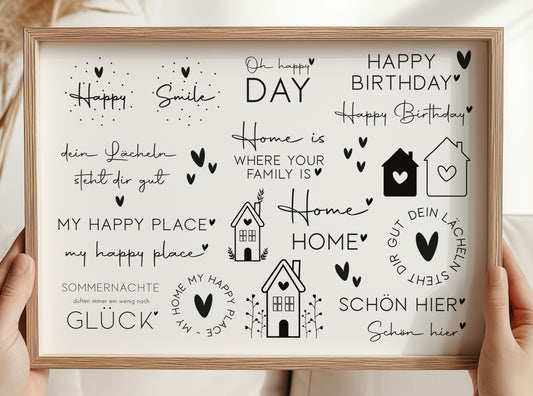 Happy
Smile
Oh happy
DAY
HAPPY
BIRTHDAY
Happy Birthday
dein Lächeln
steht dir gut
Home is
WHERE YOUR
FAMILY IS
MY HAPPY PLACE
my happy place
Home
HOME
DEIN LÄCHELN STEHT DIR GUT
SOMMERNÄCHTE
duften immer ein wenig nach
GLÜCK
MY HOME MY HAPPY PLACE -
SCHÖN HIER
Schön hier